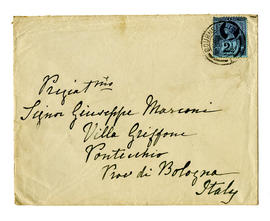 BOURNEM
2½
Pregiatmo
Signor Giuseppe Marconi
Villa Griffone
Pontecchio
Prov di Bologna
Italy